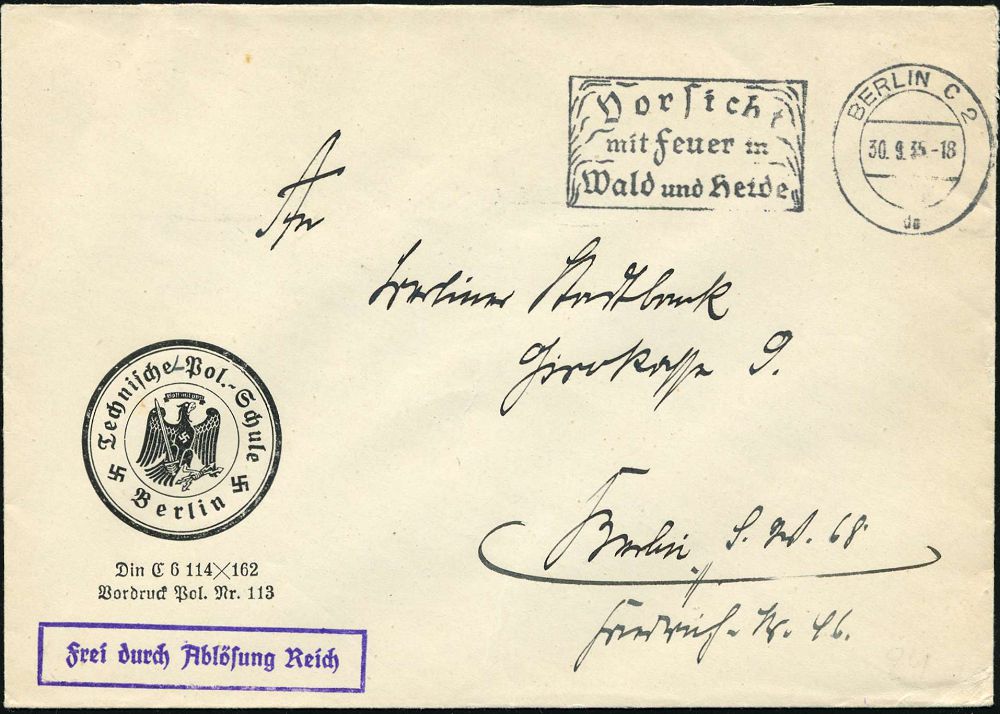 Vorsicht
mit Feuer in
Wald und Heide
BERLIN C 2
30. 9. 35.-18
da
An
Berliner Stadtbank
Girokasse 9.
Berlin S. W. 68
Friedrich-Str. 46.
Technische Pol.-Schule
Gott mit uns
Berlin
Din C 6 114×162
Vordruck Pol. Nr. 113
Frei durch Ablösung Reich